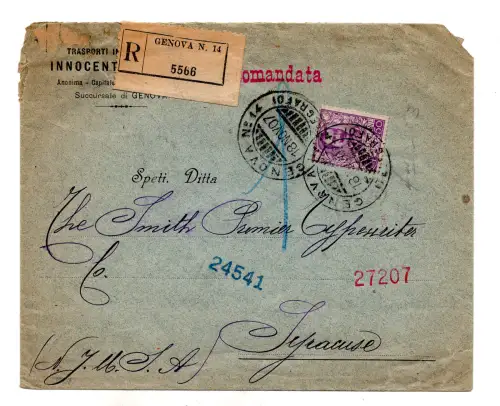 TRASPORTI IN
INNOCENT
Anonima - Capitale
Succursale di GENOVA
R
GENOVA N. 14
5566
omandata
GENOVA Nº 14
18 NOV 07
GENOVA
18
Speti. Ditta
The Smith Premier Typewriter
Co.
24541
27207
Syracuse
(N. Y. U. S. A)